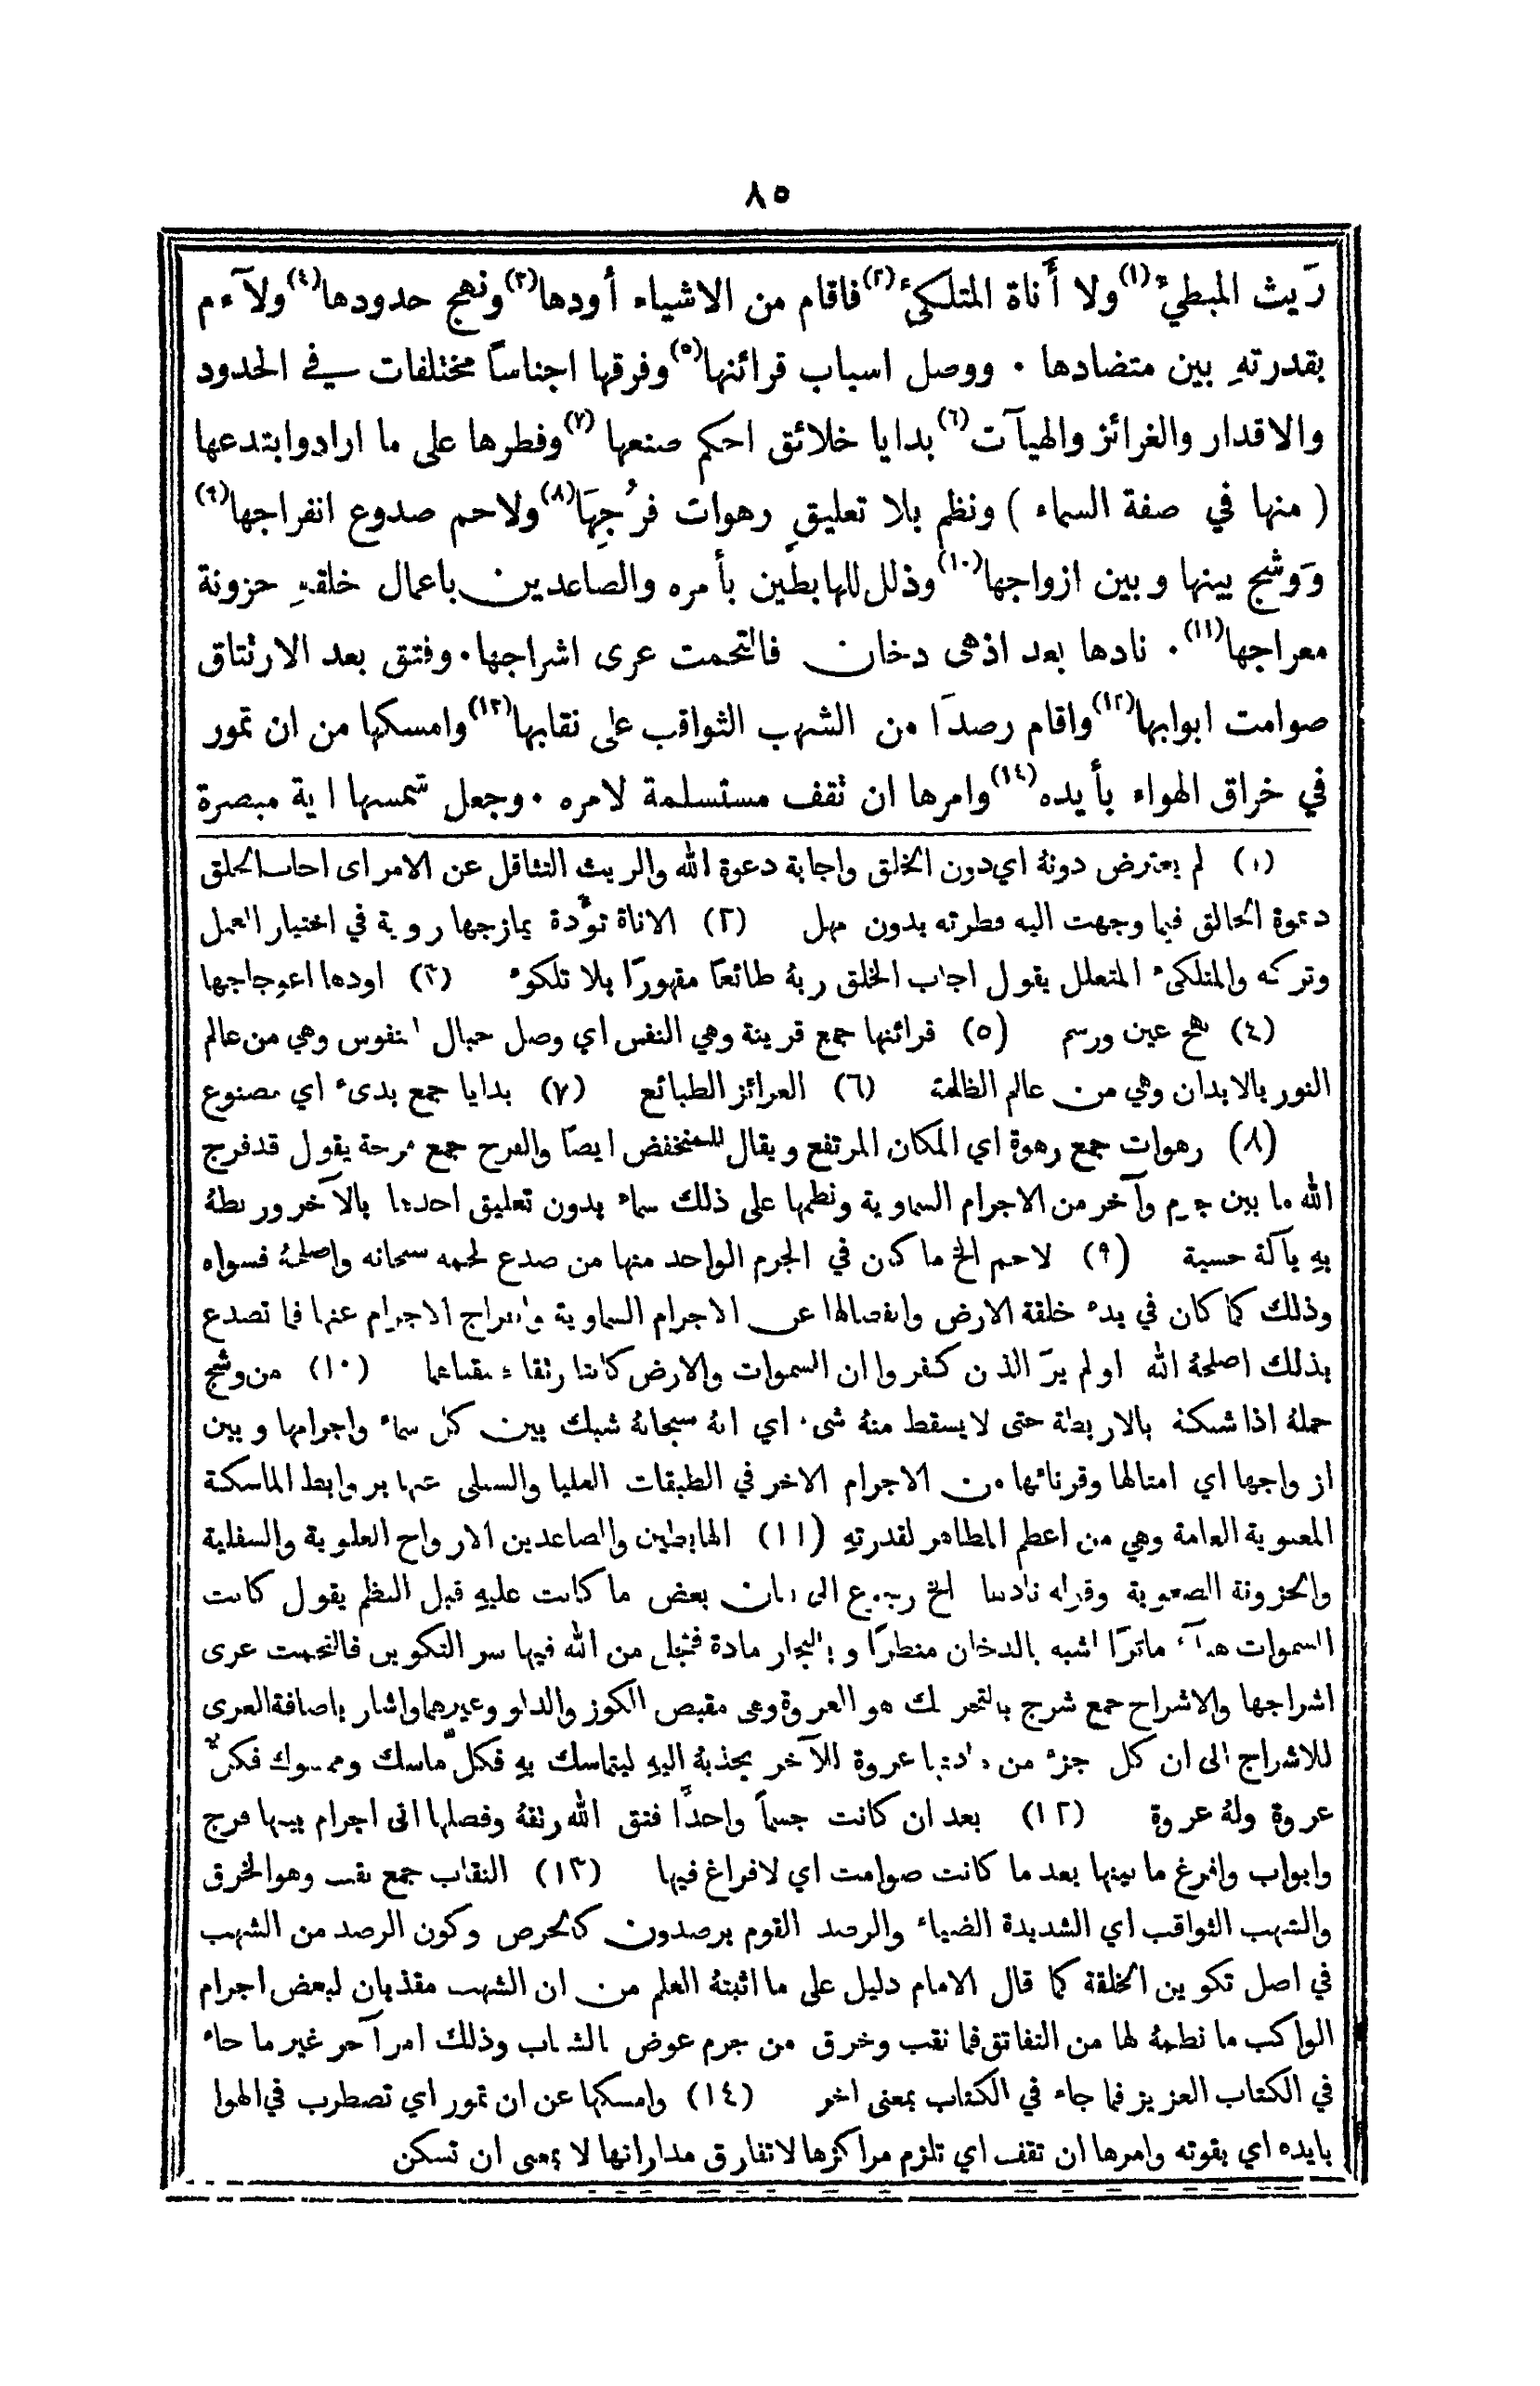 ٨٥
رَيث المبطيء(١) ولا أَناة المتلكىء(٢) فاقام من الاشياء أودها(٣) ونهج حدودها(٤) ولآءم
بقدرتهِ بين متضادها . ووصل اسباب قرائنها(٥) وفرقها اجناساً مختلفات في الحدود
والاقدار والغرائز والهيآت(٦) بدايا خلائق احكم صنعها(٧) وفطرها على ما اراد وابتدعها
( منها في صفة السماء ) ونظم بلا تعليقٍ رهوات فُرَجِهَا(٨) ولاحم صدوع انفراجها(٩)
وَوشج بينها وبين ازواجها(١٠) وذلل للهابطين بأمره والصاعدين باعمال خلقهِ حزونة
معراجها(١١) . نادها بعد اذ هى دخان فالتحمت عرى اشراجها . وفتق بعد الارتتاق
صوامت ابوابها(١٢) واقام رصدًا من الشهب الثواقب على نقابها(١٣) وامسكها من ان تمور
في خراق الهواء بأيده(١٤) وامرها ان تقف مستسلمة لامره . وجعل شمسها اية مبصرة
(١) لم يعترض دونهُ اي دون الخلق واجابة دعوة الله والريث التثاقل عن الامر اى اجاب الخلق
دعوة الخالق فيما وجهت اليه فطرته بدون مهل (٢) الاناة تؤدة يمازجها روية في اختيار العمل
وتركه والمتلكىء المتعلل يقول اجاب الخلق ربهُ طائعًا مقهورًا بلا تلكوء (٣) اودها اعوجاجها
(٤) نهج عين ورسم (٥) قرائنها جمع قرينة وهي النفس اي وصل حبال النفوس وهي من عالم
النور بالابدان وهي من عالم الظلمة (٦) الغرائز الطبائع (٧) بدايا جمع بدىء اي مصنوع
(٨) رهوات جمع رهوة اي المكان المرتفع ويقال للمنخفض ايضًا والفرج جمع فرجة يقول قد فرج
الله ما بين جرم وآخر من الاجرام السماوية ونظمها على ذلك سماء بدون تعليق احدها بالآخر وربطهُ
بهِ بآلة حسية (٩) لاحم الخ ما كان في الجرم الواحد منها من صدع لحمه سبحانه واصلحهُ فسواه
وذلك كما كان في بدء خلقة الارض وانفصالها عن الاجرام السماوية وانفراج الاجرام عنها فما تصدع
بذلك اصلحهُ الله او لم يرَ الذين كفروا ان السموات والارض كانتا رتقا ففتقناهما (١٠) من وشج
محملهُ اذا شبكهُ بالاربطة حتى لا يسقط منهُ شى. اي انهُ سبحانهُ شبك بين كل سماء واجرامها وبين
ازواجها اي امثالها وقرنائها من الاجرام الاخر في الطبقات العليا والسفلى عنها بروابط الماسكة
المعنوية العامة وهي من اعظم المظاهر لقدرتهِ (١١) الهابطين والصاعدين الارواح العلوية والسفلية
والحزونة الصعوبة وقوله ناداها الخ رجوع الى بيان بعض ما كانت عليهِ قبل النظم يقول كانت
السموات هبآء ماترًا اشبه بالدخان منظرًا وبالبخار مادة فتجلى من الله فيها سر التكوين فالتحمت عرى
اشراجها والاشراج جمع شرج بالتحريك هو العروة وهى مقبض الكوز والدلو وغيرهما واشار باضافة العرى
للاشراج الى ان كل جزء من مادتها عروة للآخر يجذبهُ اليهِ ليتماسك بهِ فكلٌ ماسك وممسوك فكلٌ
عروة ولهُ عروة (١٢) بعد ان كانت جسمًا واحدًا فتق الله رتقهُ وفصلها الى اجرام بينها فرج
وابواب وافرغ ما بينها بعد ما كانت صوامت اي لا فراغ فيها (١٣) النقاب جمع نقب وهو الخرق
والشهب الثواقب اي الشديدة الضياء والرصد القوم يرصدون كالحرس وكون الرصد من الشهب
في اصل تكوين الخلقة كما قال الامام دليل على ما اثبتهُ العلم من ان الشهب مقذيان لبعض اجرام
الواكب ما نظمهُ لها من التفاتق فما نقب وخرق من جرم عوض بالشهاب وذلك امر آخر غير ما جاء
في الكتاب العزيز فما جاء في الكتاب بمعنى اخر (١٤) وامسكها عن ان تمور اي تضطرب في الهوا
بايده اي بقوته وامرها ان تقف اي تلزم مراكزها لا تفارق مداراتها لا بمعنى ان تسكن